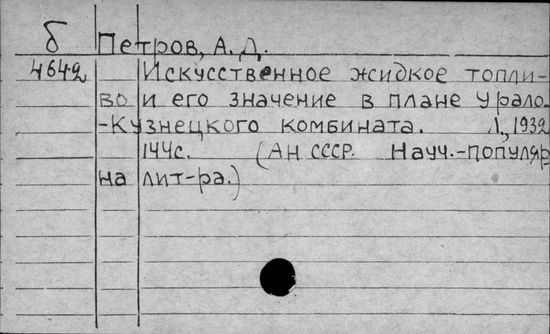 б Петров, А. Д.
4642 Искусственное жидкое топли-
во и его значение в плане Урало-
-Кузнецкого комбината. Л., 1932
144с. (АН СССР. Науч.-популяр
на лит-ра.)